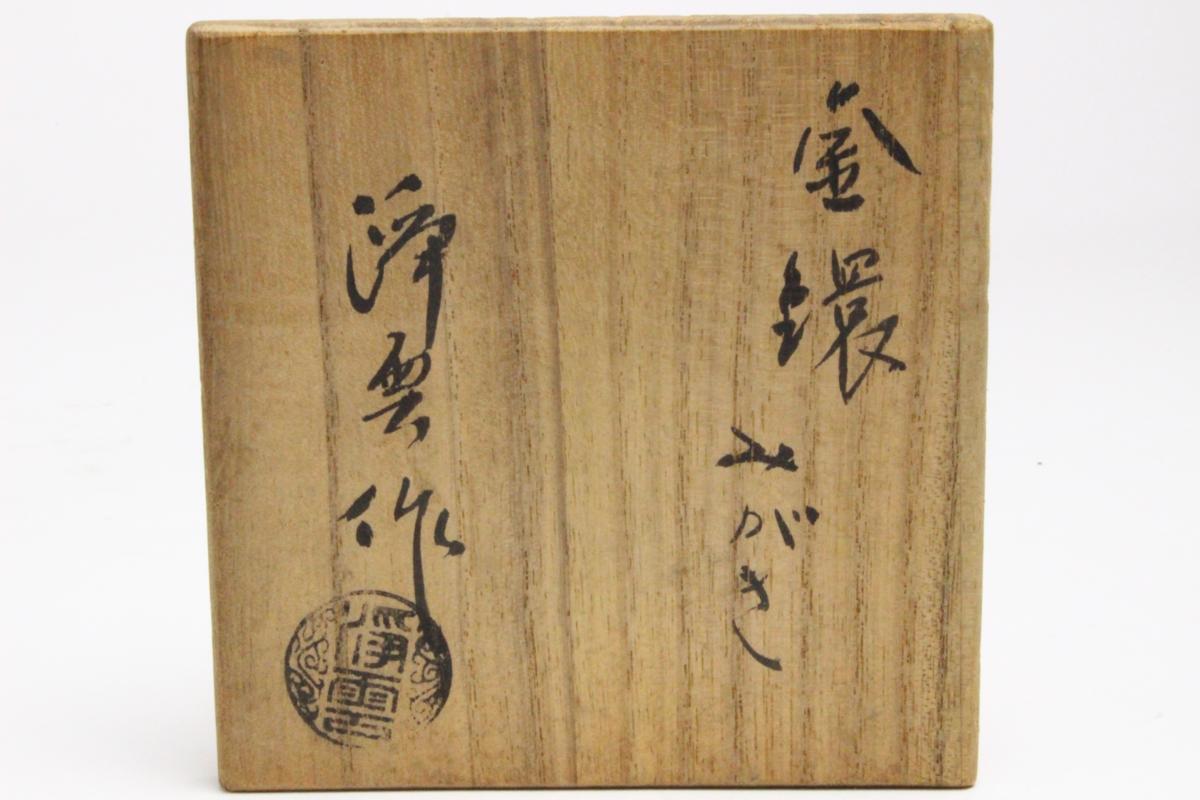 金鐶
みがき
浄雲作
浄雲